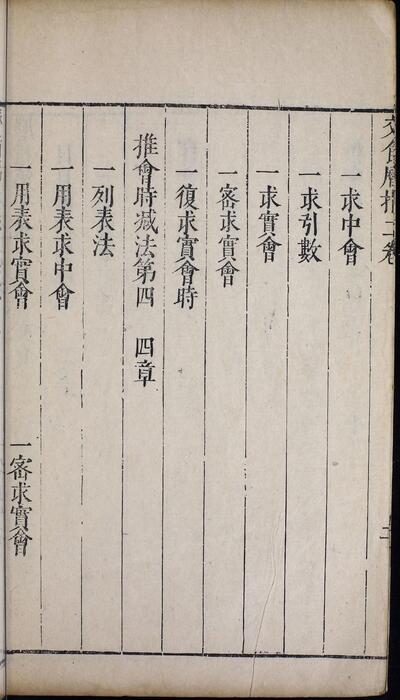 交食曆指二卷
一求中會
一求引數
一求實會
一宻求實會
一復求實會時
推會時减法第四　四章
一列表法
一用表求中會
一用表求實會　一宻求實會